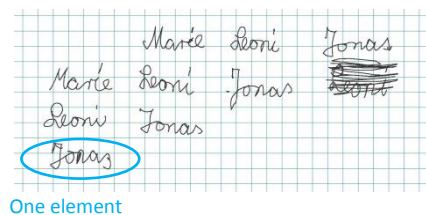 Marie Leoni Jonas
Marie Leoni Jonas Leoni
Leoni Jonas
Jonas
One element